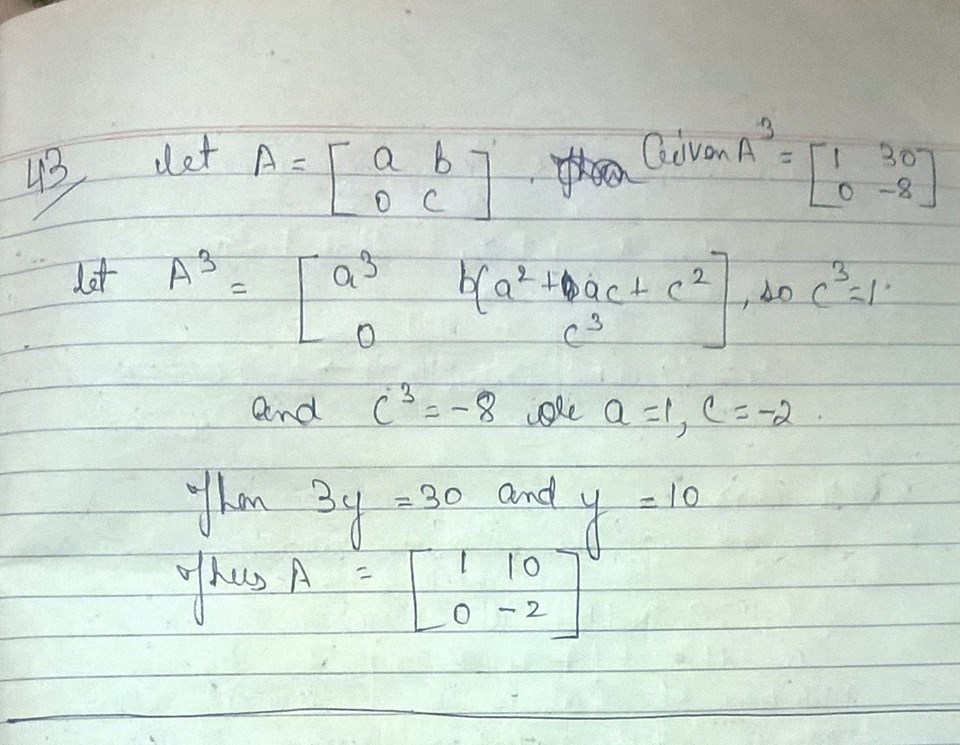 43 let A = [ a b 0 c ] . Given A³ = [ 1 30 0 -8 ]
let A³ = [ a³ b(a² + ac + c² 0 c³ ] , so c³ = 1.
and c³ = -8 a = 1, c = -2 .
Then 3y = 30 and y = 10
Thus A = [ 1 10 0 -2 ]